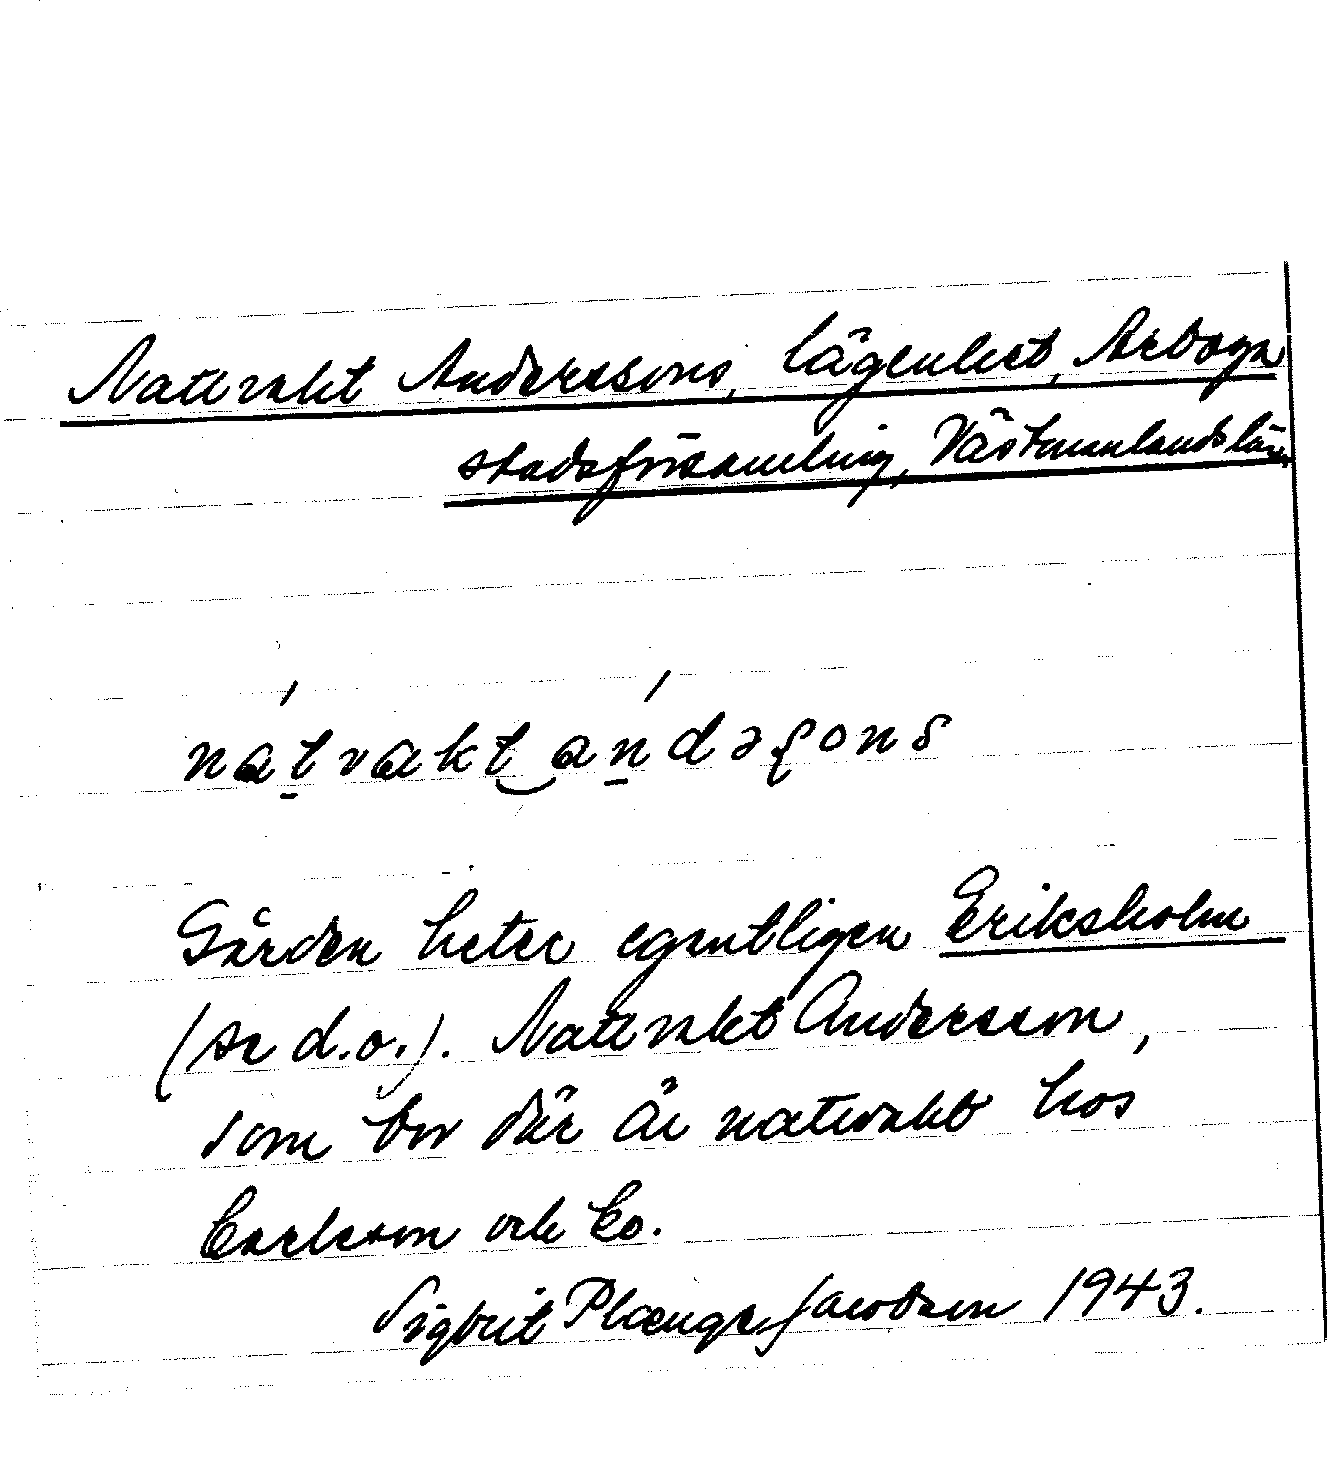 Nattvakt Anderssons, lägenhet, Arboga
stadsförsamling, Västmanlands län.
nátvakt‿ándəʂons
Gården heter egentligen Eriksholm
(se d.o.). Nattvakt Andersson,
som bor där är nattvakt hos
Carlsson och Co.
Sigbrit Plænge Jacobson 1943.